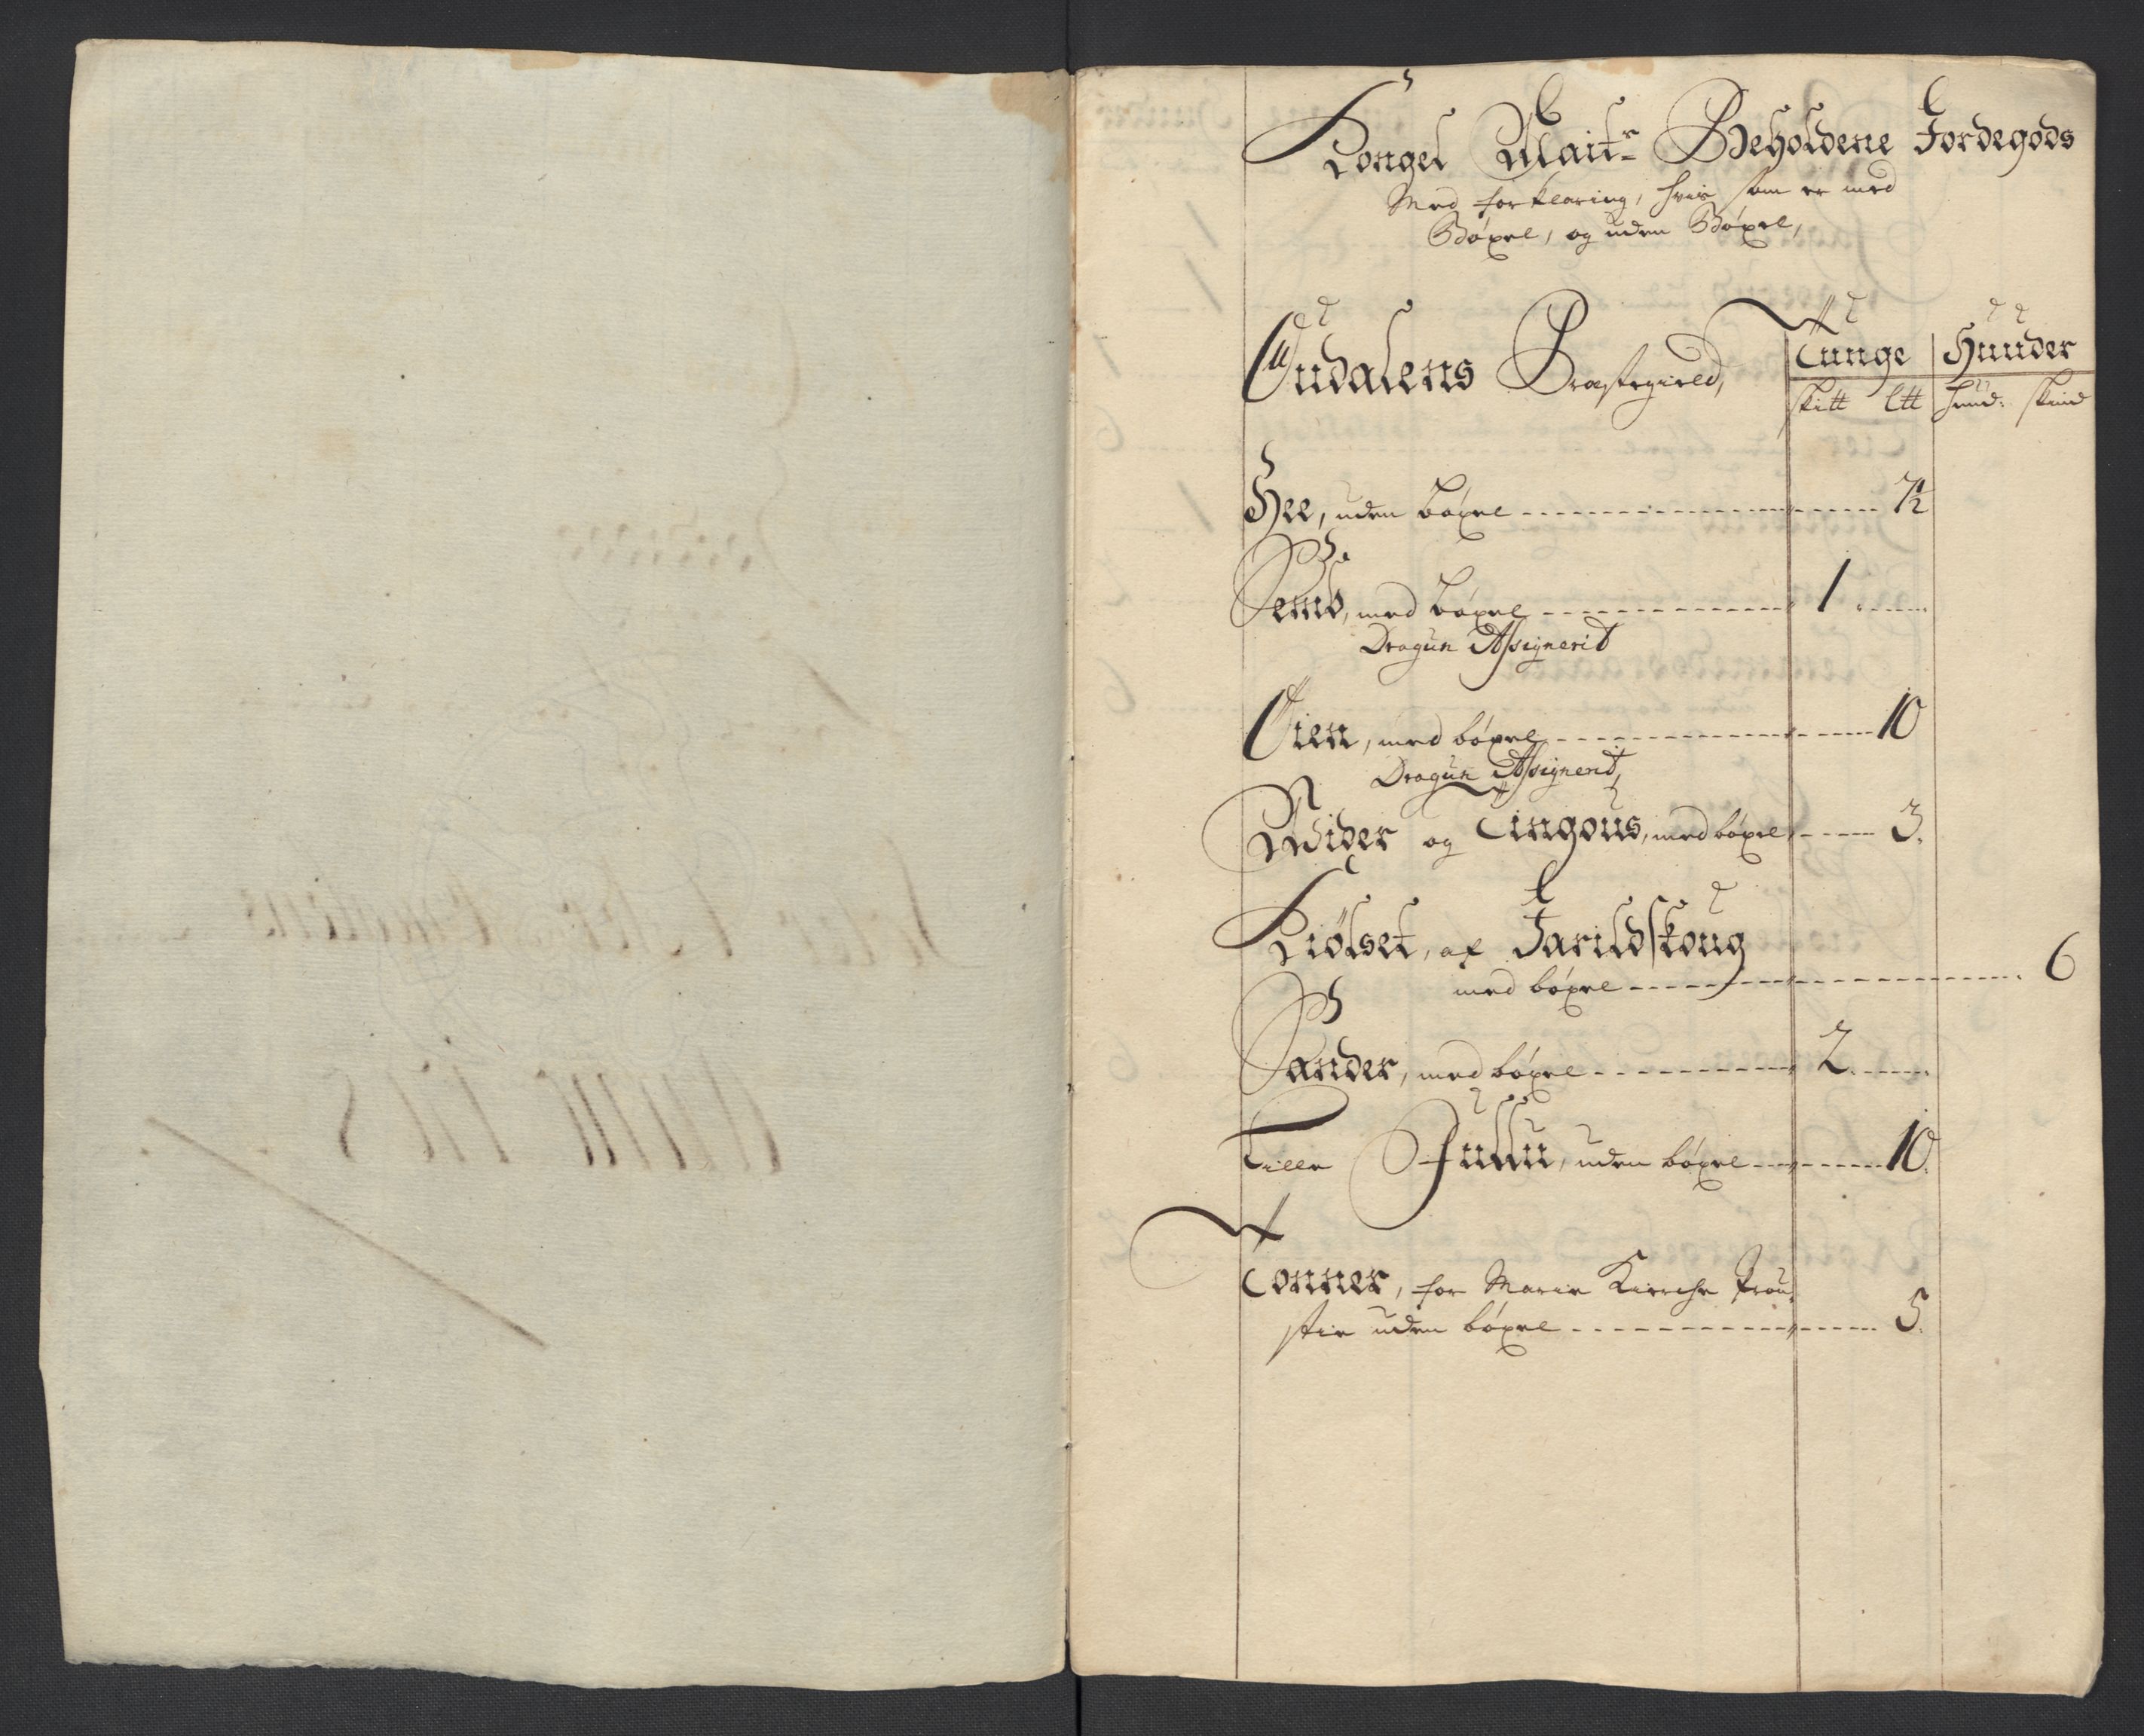 Kongel Maits Beholdene Jordegods
Med forklaring, hvis som er med
Böxel, og uden Böxel,
Oudalens Præstegield, Tunge Huuder
skitt ltt hud: skind
Hee, uden böxel 7½
Semb, med böxel 1
Dragun Assignerit
Öien, med böxel 10
Dragun Assignerit,
Qvider og Tingous, med böxel 3.
Kiölset, af Jarildskoug
med böxel 6
Sander, med böxel 2.
Lille Jullu, uden böxel 10.
Tonner, for Marie Kirche Prou„
stie uden böxel 5.